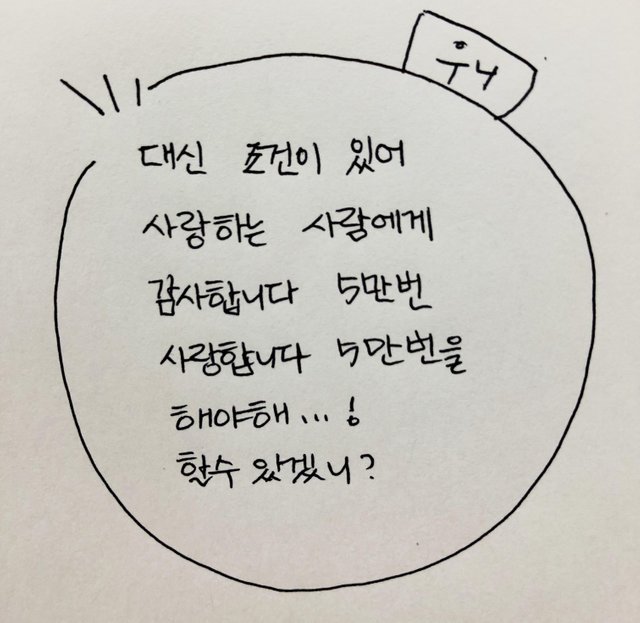 우니
대신 조건이 있어
사랑하는 사람에게
감사합니다 5만번
사랑합니다 5만번을
해야해...!
할수 있겠니?